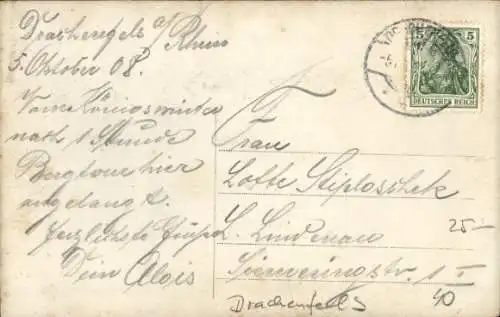 Drachenfels a/Rhein
5. Oktober 08.
Von Königswinter
nach 1 Stunde
Bergtour hier
angelangt.
Herzlichste Grüsse
Dein Alois
5 5
DEUTSCHES REICH
Frau
Lotte
L. Lindenau
1 I
25-
Drachenfels
40